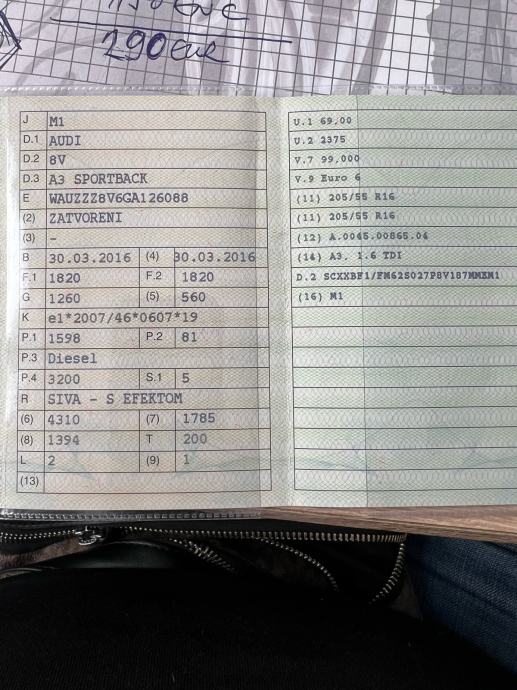 290 eur
J M1
D.1 AUDI
D.2 8V
D.3 A3 SPORTBACK
E WAUZZZ8V6GA126088
(2) ZATVORENI
(3) –
B 30.03.2016 (4) 30.03.2016
F.1 1820 F.2 1820
G 1260 (5) 560
K e1*2007/46*0607*19
P.1 1598 P.2 81
P.3 Diesel
P.4 3200 S.1 5
R SIVA - S EFEKTOM
(6) 4310 (7) 1785
(8) 1394 T 200
L 2 (9) 1
(13)
U.1 69,00
U.2 2375
V.7 99,000
V.9 Euro 6
(11) 205/55 R16
(11) 205/55 R16
(12) A.0045.00865.04
(14) A3. 1.6 TDI
D.2 SCXXBF1/FM62S027P8V187MMEM1
(16) M1